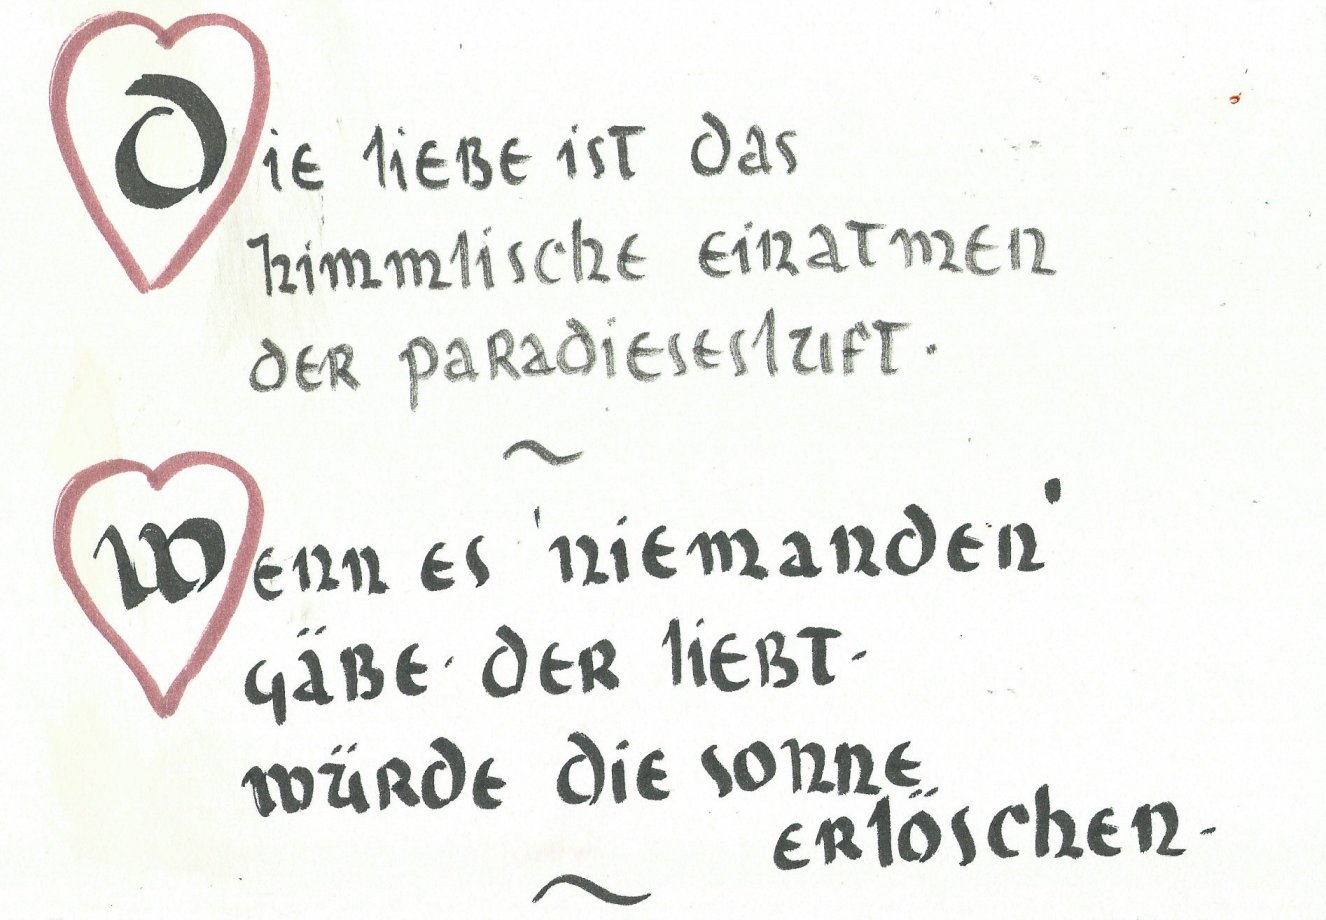 Die Liebe ist das
himmlische Einatmen
der Paradiesesluft.
~
Wenn es 'niemanden'
gäbe, der liebt,
würde die Sonne
erlöschen.
~